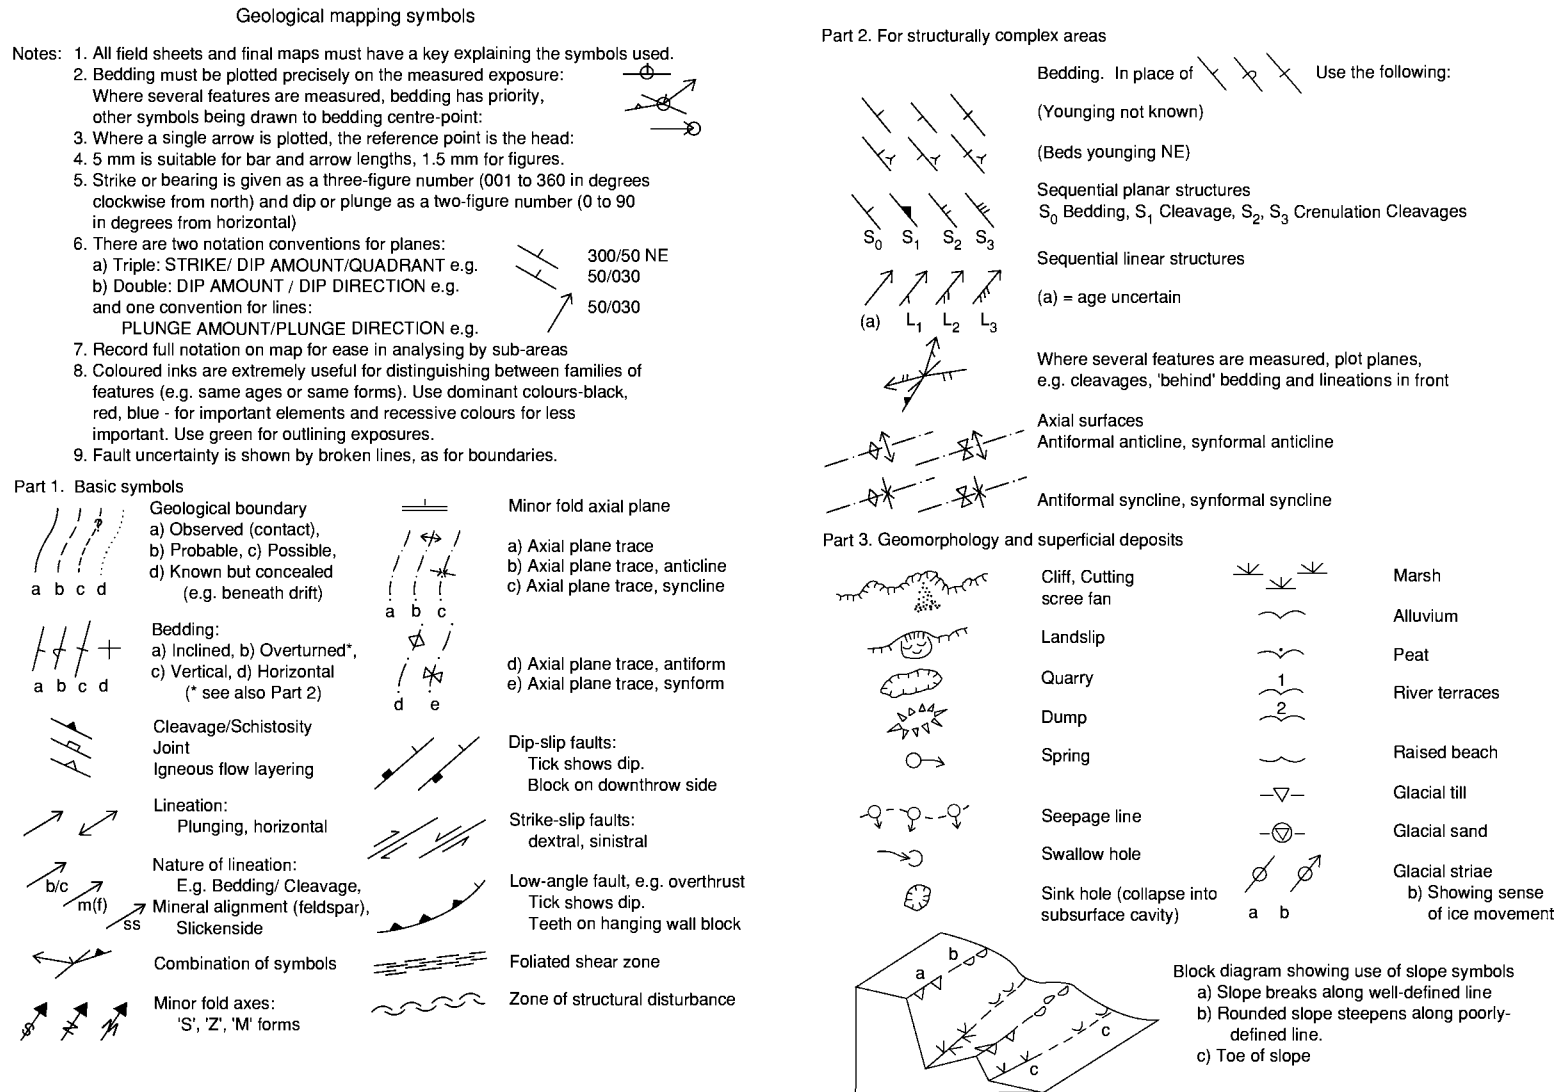 Geological mapping symbols
Notes: 1. All field sheets and final maps must have a key explaining the symbols used.
2. Bedding must be plotted precisely on the measured exposure:
Where several features are measured, bedding has priority,
other symbols being drawn to bedding centre-point:
3. Where a single arrow is plotted, the reference point is the head:
4. 5 mm is suitable for bar and arrow lengths, 1.5 mm for figures.
5. Strike or bearing is given as a three-figure number (001 to 360 in degrees
clockwise from north) and dip or plunge as a two-figure number (0 to 90
in degrees from horizontal)
6. There are two notation conventions for planes:
a) Triple: STRIKE/ DIP AMOUNT/QUADRANT e.g.
300/50 NE
b) Double: DIP AMOUNT / DIP DIRECTION e.g.
50/030
and one convention for lines:
PLUNGE AMOUNT/PLUNGE DIRECTION e.g.
50/030
7. Record full notation on map for ease in analysing by sub-areas
8. Coloured inks are extremely useful for distinguishing between families of
features (e.g. same ages or same forms). Use dominant colours-black,
red, blue - for important elements and recessive colours for less
important. Use green for outlining exposures.
9. Fault uncertainty is shown by broken lines, as for boundaries.
Part 1. Basic symbols
?
a b c d
Geological boundary
a) Observed (contact),
b) Probable, c) Possible,
d) Known but concealed
(e.g. beneath drift)
a b c d
Bedding:
a) Inclined, b) Overturned*,
c) Vertical, d) Horizontal
(* see also Part 2)
Cleavage/Schistosity
Joint
Igneous flow layering
Lineation:
Plunging, horizontal
b/c
m(f)
ss
Nature of lineation:
E.g. Bedding/ Cleavage,
Mineral alignment (feldspar),
Slickenside
Combination of symbols
S Z M
Minor fold axes:
'S', 'Z', 'M' forms
Minor fold axial plane
a b c
a) Axial plane trace
b) Axial plane trace, anticline
c) Axial plane trace, syncline
d e
d) Axial plane trace, antiform
e) Axial plane trace, synform
Dip-slip faults:
Tick shows dip.
Block on downthrow side
Strike-slip faults:
dextral, sinistral
Low-angle fault, e.g. overthrust
Tick shows dip.
Teeth on hanging wall block
Foliated shear zone
Zone of structural disturbance
Part 2. For structurally complex areas
Bedding. In place of Use the following:
(Younging not known)
(Beds younging NE)
Sequential planar structures
S0 Bedding, S1 Cleavage, S2, S3 Crenulation Cleavages
S0 S1 S2 S3
Sequential linear structures
(a) = age uncertain
(a) L1 L2 L3
Where several features are measured, plot planes,
e.g. cleavages, 'behind' bedding and lineations in front
Axial surfaces
Antiformal anticline, synformal anticline
Antiformal syncline, synformal syncline
Part 3. Geomorphology and superficial deposits
Cliff, Cutting
scree fan
Landslip
Quarry
Dump
Spring
Seepage line
Swallow hole
Sink hole (collapse into
subsurface cavity)
Marsh
Alluvium
Peat
1
2
River terraces
Raised beach
Glacial till
Glacial sand
a b
Glacial striae
b) Showing sense
of ice movement
a
b
c
c
Block diagram showing use of slope symbols
a) Slope breaks along well-defined line
b) Rounded slope steepens along poorly-
defined line.
c) Toe of slope